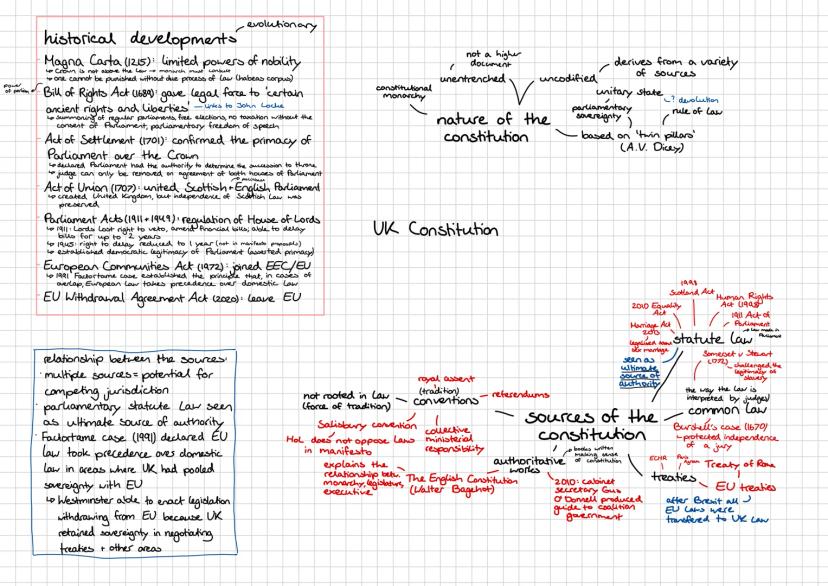 evolutionary
historical developments
Magna Carta (1215): limited powers of nobility
↳ Crown is not above the law → monarch must consult
↳ one cannot be punished without due process of law (habeas corpus)
power of parliam.
Bill of Rights Act (1689): gave legal force to 'certain
ancient rights and liberties' — links to John Locke
↳ summoning of regular parliaments, free elections, no taxation without the
consent of Parliament, parliamentary freedom of speech
Act of Settlement (1701): confirmed the primacy of
Parliament over the Crown
↳ declared Parliament had the authority to determine the succession to throne
↳ judge can only be removed on agreement of both houses of Parliament
Act of Union (1707): united Scottish + English Parliament
↳ created United Kingdom, but independence of Scottish Law was
preserved
Parliament Acts (1911 + 1949): regulation of House of Lords
↳ 1911: Lords lost right to veto, amend financial bills; able to delay
bills for up to 2 years
↳ 1945: right to delay reduced to 1 year (not in manifesto proposals)
↳ established democratic legitimacy of Parliament (asserted primacy)
European Communities Act (1972): joined EEC/EU
↳ 1991 Factortame case established the principle that, in cases of
overlap, European Law takes precedence over domestic law
EU Withdrawal Agreement Act (2020): leave EU
not a higher
document
unentrenched
constitutional
monarchy
uncodified
derives from a variety
of sources
unitary state
↳ ? devolution
parliamentary
sovereignty
rule of law
based on 'twin pillars'
(A.V. Dicey)
nature of the
constitution
UK Constitution
relationship between the sources:
· multiple sources = potential for
competing jurisdiction
· parliamentary statute law seen
as ultimate source of authority
· Factortame case (1991) declared EU
law took precedence over domestic
law in areas where UK had pooled
sovereignty with EU
↳ Westminster able to enact legislation
withdrawing from EU because UK
retained sovereignty in negotiating
treaties + other areas
sources of the
constitution
1998
Scotland Act
2010 Equality
Act
Human Rights
Act (1998)
1911 Act of
Parliament
↳ law made in
Parliament
Marriage Act
2013
legalised same
sex marriage
statute law
seen as
ultimate
source of
authority
Somerset v Stewart
(1772)
↳ challenged the
legitimacy of
slavery
the way the law is
interpreted by judges
common law
Bushell's case (1670)
↳ protected independence
of a jury
treaties
ECHR
Treaty of Rome
EU treaties
after Brexit all
EU laws were
transfered to UK law
royal assent
(tradition)
conventions
referendums
not rooted in law
(force of tradition)
Salisbury convention
HoL does not oppose laws
in manifesto
collective
ministerial
responsibility
authoritative
works
↳ books written
making sense of
constitution
The English Constitution
(Walter Bagehot)
explains the
relationship betw.
monarchy, legislature,
executive
2010: cabinet
secretary Gus
O'Donnell produced
guide to coalition
government